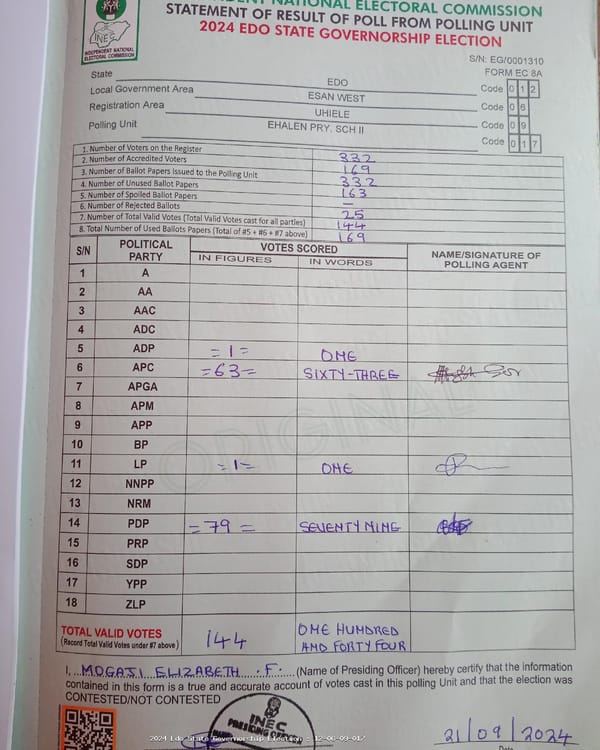 INDEPENDENT NATIONAL ELECTORAL COMMISSION
STATEMENT OF RESULT OF POLL FROM POLLING UNIT
2024 EDO STATE GOVERNORSHIP ELECTION
INEC
INDEPENDENT NATIONAL
ELECTORAL COMMISSION
S/N: EG/0001310
FORM EC 8A
State EDO Code 0 1 2
Local Government Area ESAN WEST Code 0 6
Registration Area UHIELE Code 0 9
Polling Unit EHALEN PRY. SCH II Code 0 1 7
1. Number of Voters on the Register 332
2. Number of Accredited Voters 169
3. Number of Ballot Papers Issued to the Polling Unit 332
4. Number of Unused Ballot Papers 163
5. Number of Spoiled Ballot Papers —
6. Number of Rejected Ballots 25
7. Number of Total Valid Votes (Total Valid Votes cast for all parties) 144
8. Total Number of Used Ballots Papers (Total of #5 + #6 + #7 above) 169
S/N POLITICAL PARTY VOTES SCORED NAME/SIGNATURE OF POLLING AGENT
IN FIGURES IN WORDS
1 A
2 AA
3 AAC
4 ADC
5 ADP =1= ONE
6 APC =63= SIXTY-THREE
7 APGA
8 APM
9 APP
10 BP
11 LP =1= ONE
12 NNPP
13 NRM
14 PDP =79= SEVENTY NINE
15 PRP
16 SDP
17 YPP
18 ZLP
ORIGINAL
TOTAL VALID VOTES 144 ONE HUNDRED
(Record Total Valid Votes under #7 above) AND FORTY FOUR
I, MOGAJI ELIZABETH .F. (Name of Presiding Officer) hereby certify that the information
contained in this form is a true and accurate account of votes cast in this polling Unit and that the election was
CONTESTED/NOT CONTESTED
INEC
PRESIDING
21/09/2024
Date
2024 Edo State Governorship Election - 12-06-09-017